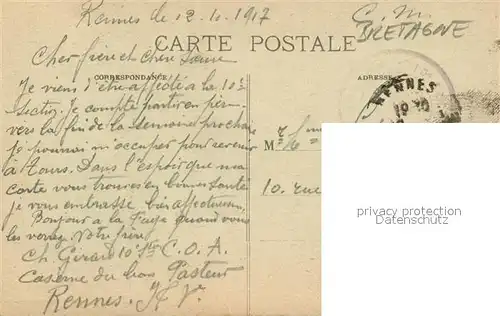 Rennes le 12.11.1917
C. M.
BRETAGNE
CARTE POSTALE
CORRESPONDANCE
ADRESSE
RENNES
Cher frère et Chère Sœur
Je viens d'être affecté à la 10e
Section. Je compte partir en perm-
vers la fin de la semaine prochaine
je pourrai m'occuper pour revenir
à Tours. Dans l'espoir que ma
carte vous trouvera en bonne santé
je vous embrasse bien affectueusem.
Bonjour à la quand vous
les verrez. Votre frère
Ch Gérard 10e C.O.A.
Caserne du bon Pasteur
Rennes. I et V.
M
10. rue
privacy protection
Datenschutz